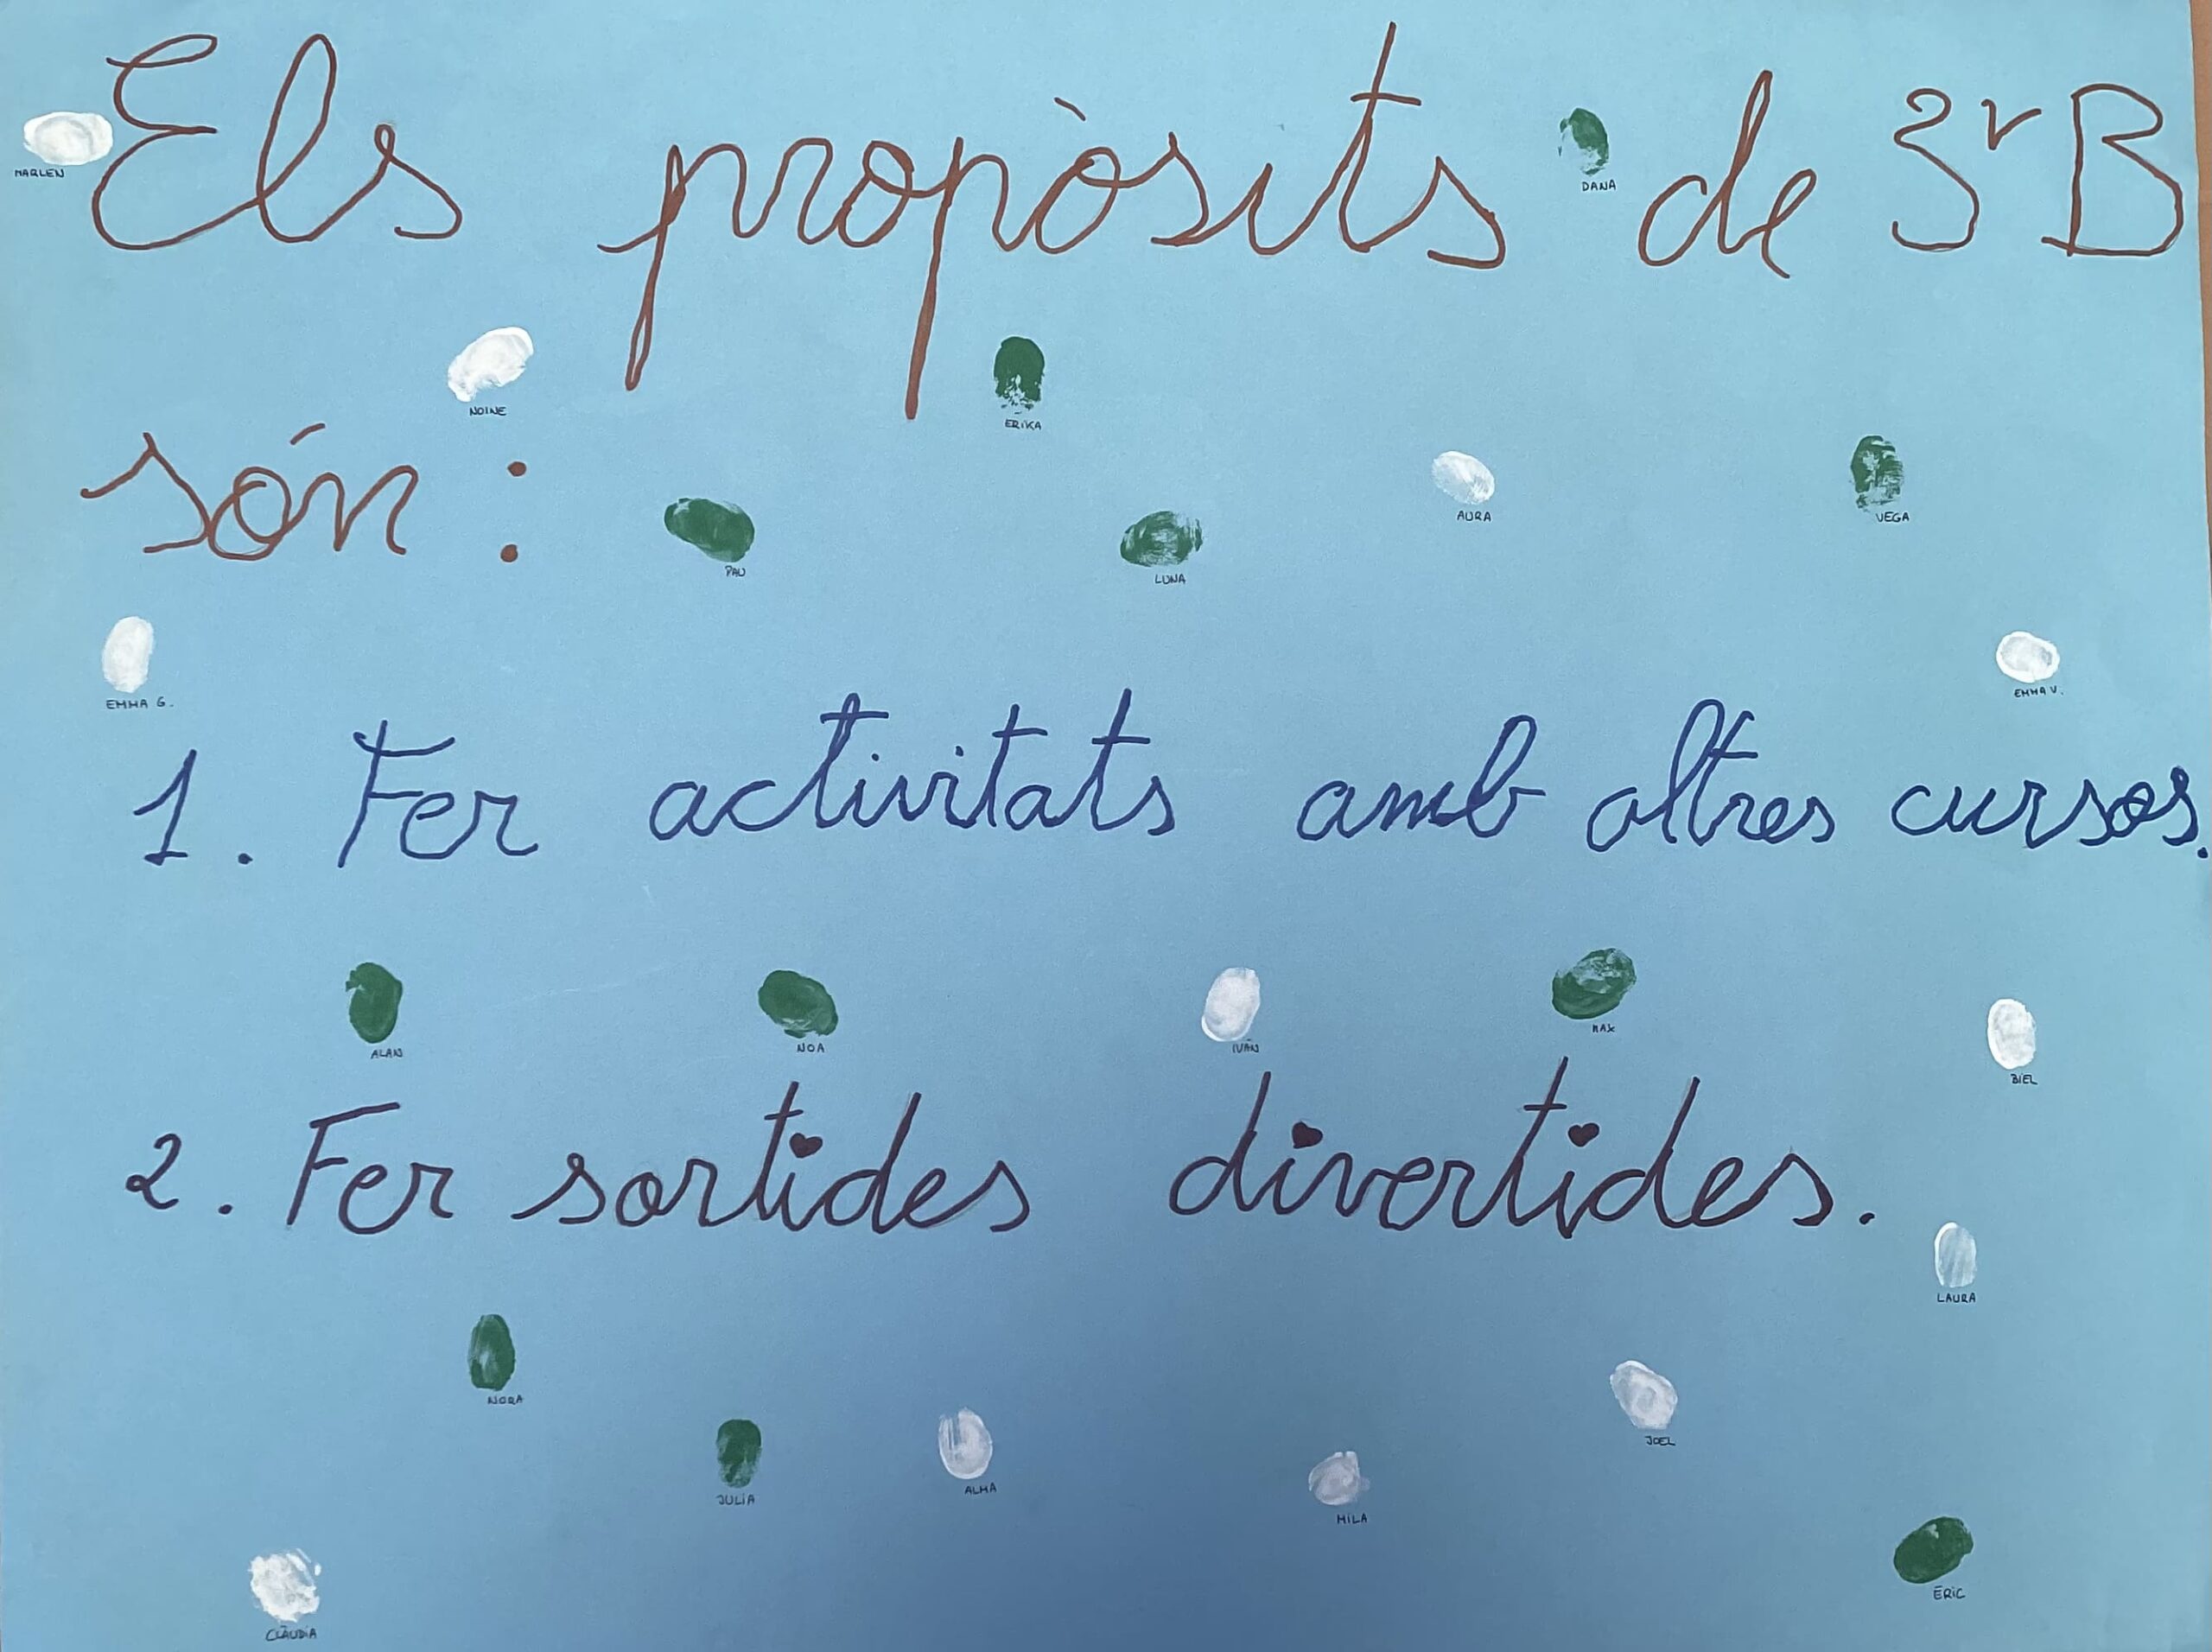 MARLEN
Els propòsits de 3r B
DANA
NOINE
ERIKA
són:
PAU
LUNA
AURA
VEGA
EMMA G.
EMMA V.
1. Fer activitats amb altres cursos.
ALAN
NOA
IVÁN
MAX
BIEL
2. Fer sortides divertides.
LAURA
NORA
JOEL
JULIA
ALMA
MILA
ERIC
CLÀUDIA